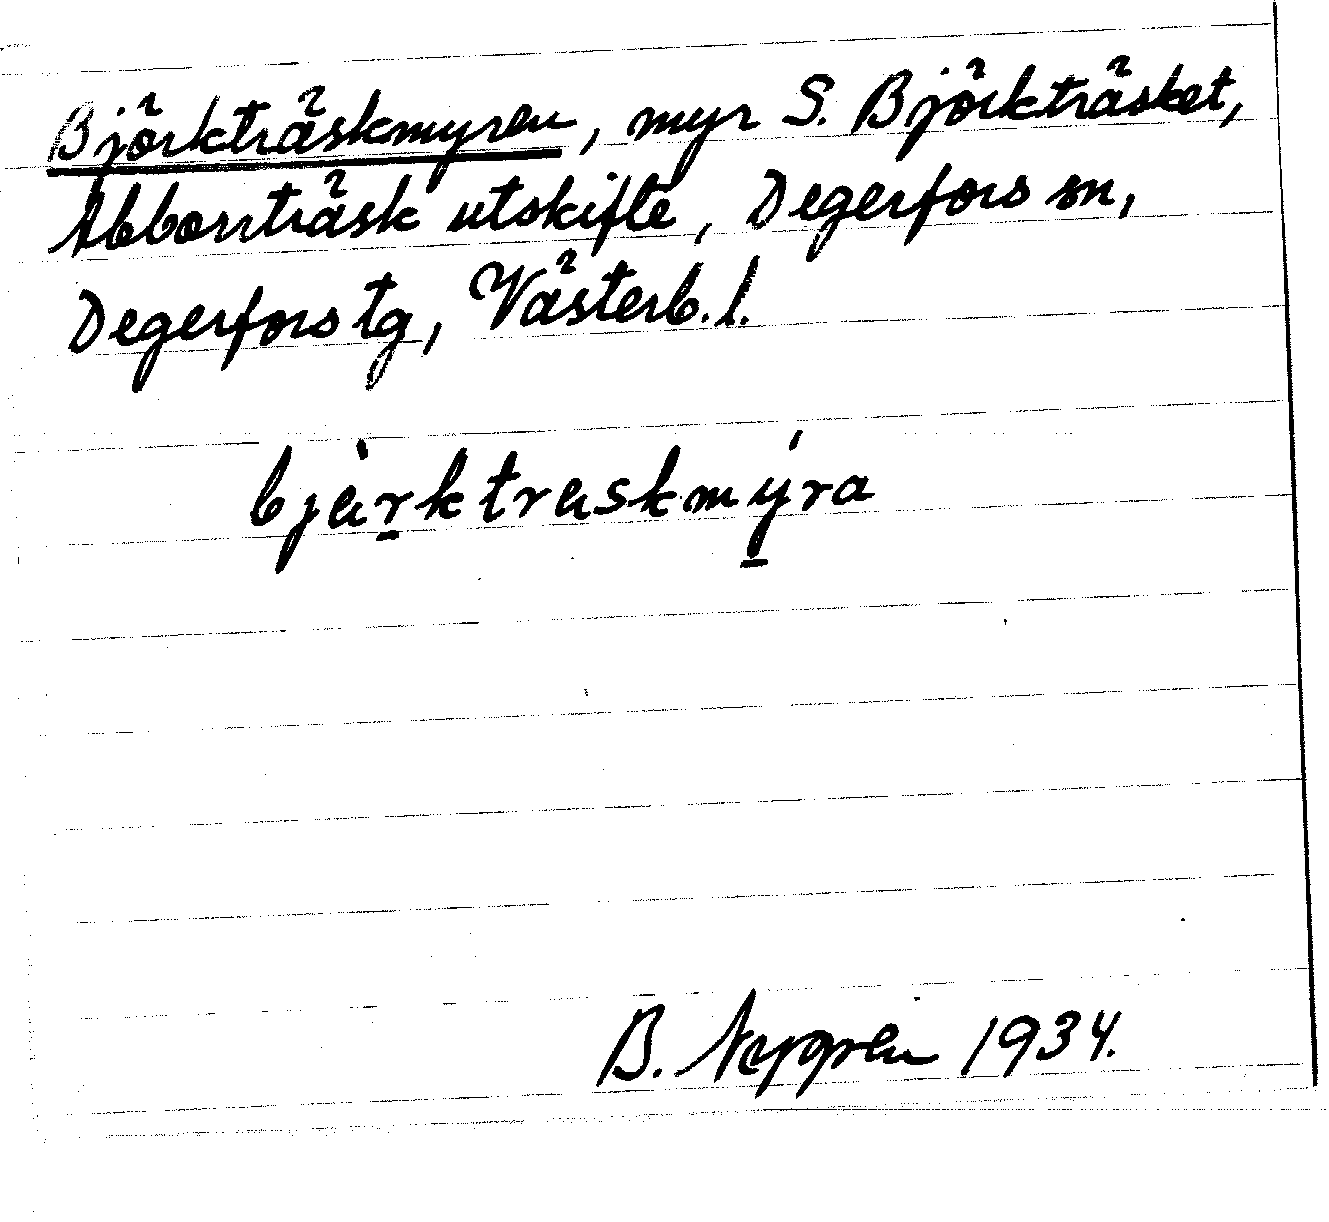 Björkträskmyren, myr S. Björkträsket,
Abborrträsk utskifte, Degerfors sn,
Degerfors tg, Västerb. l.
bjὰr̲ktraskmý̲ra
B. Nygren 1934.